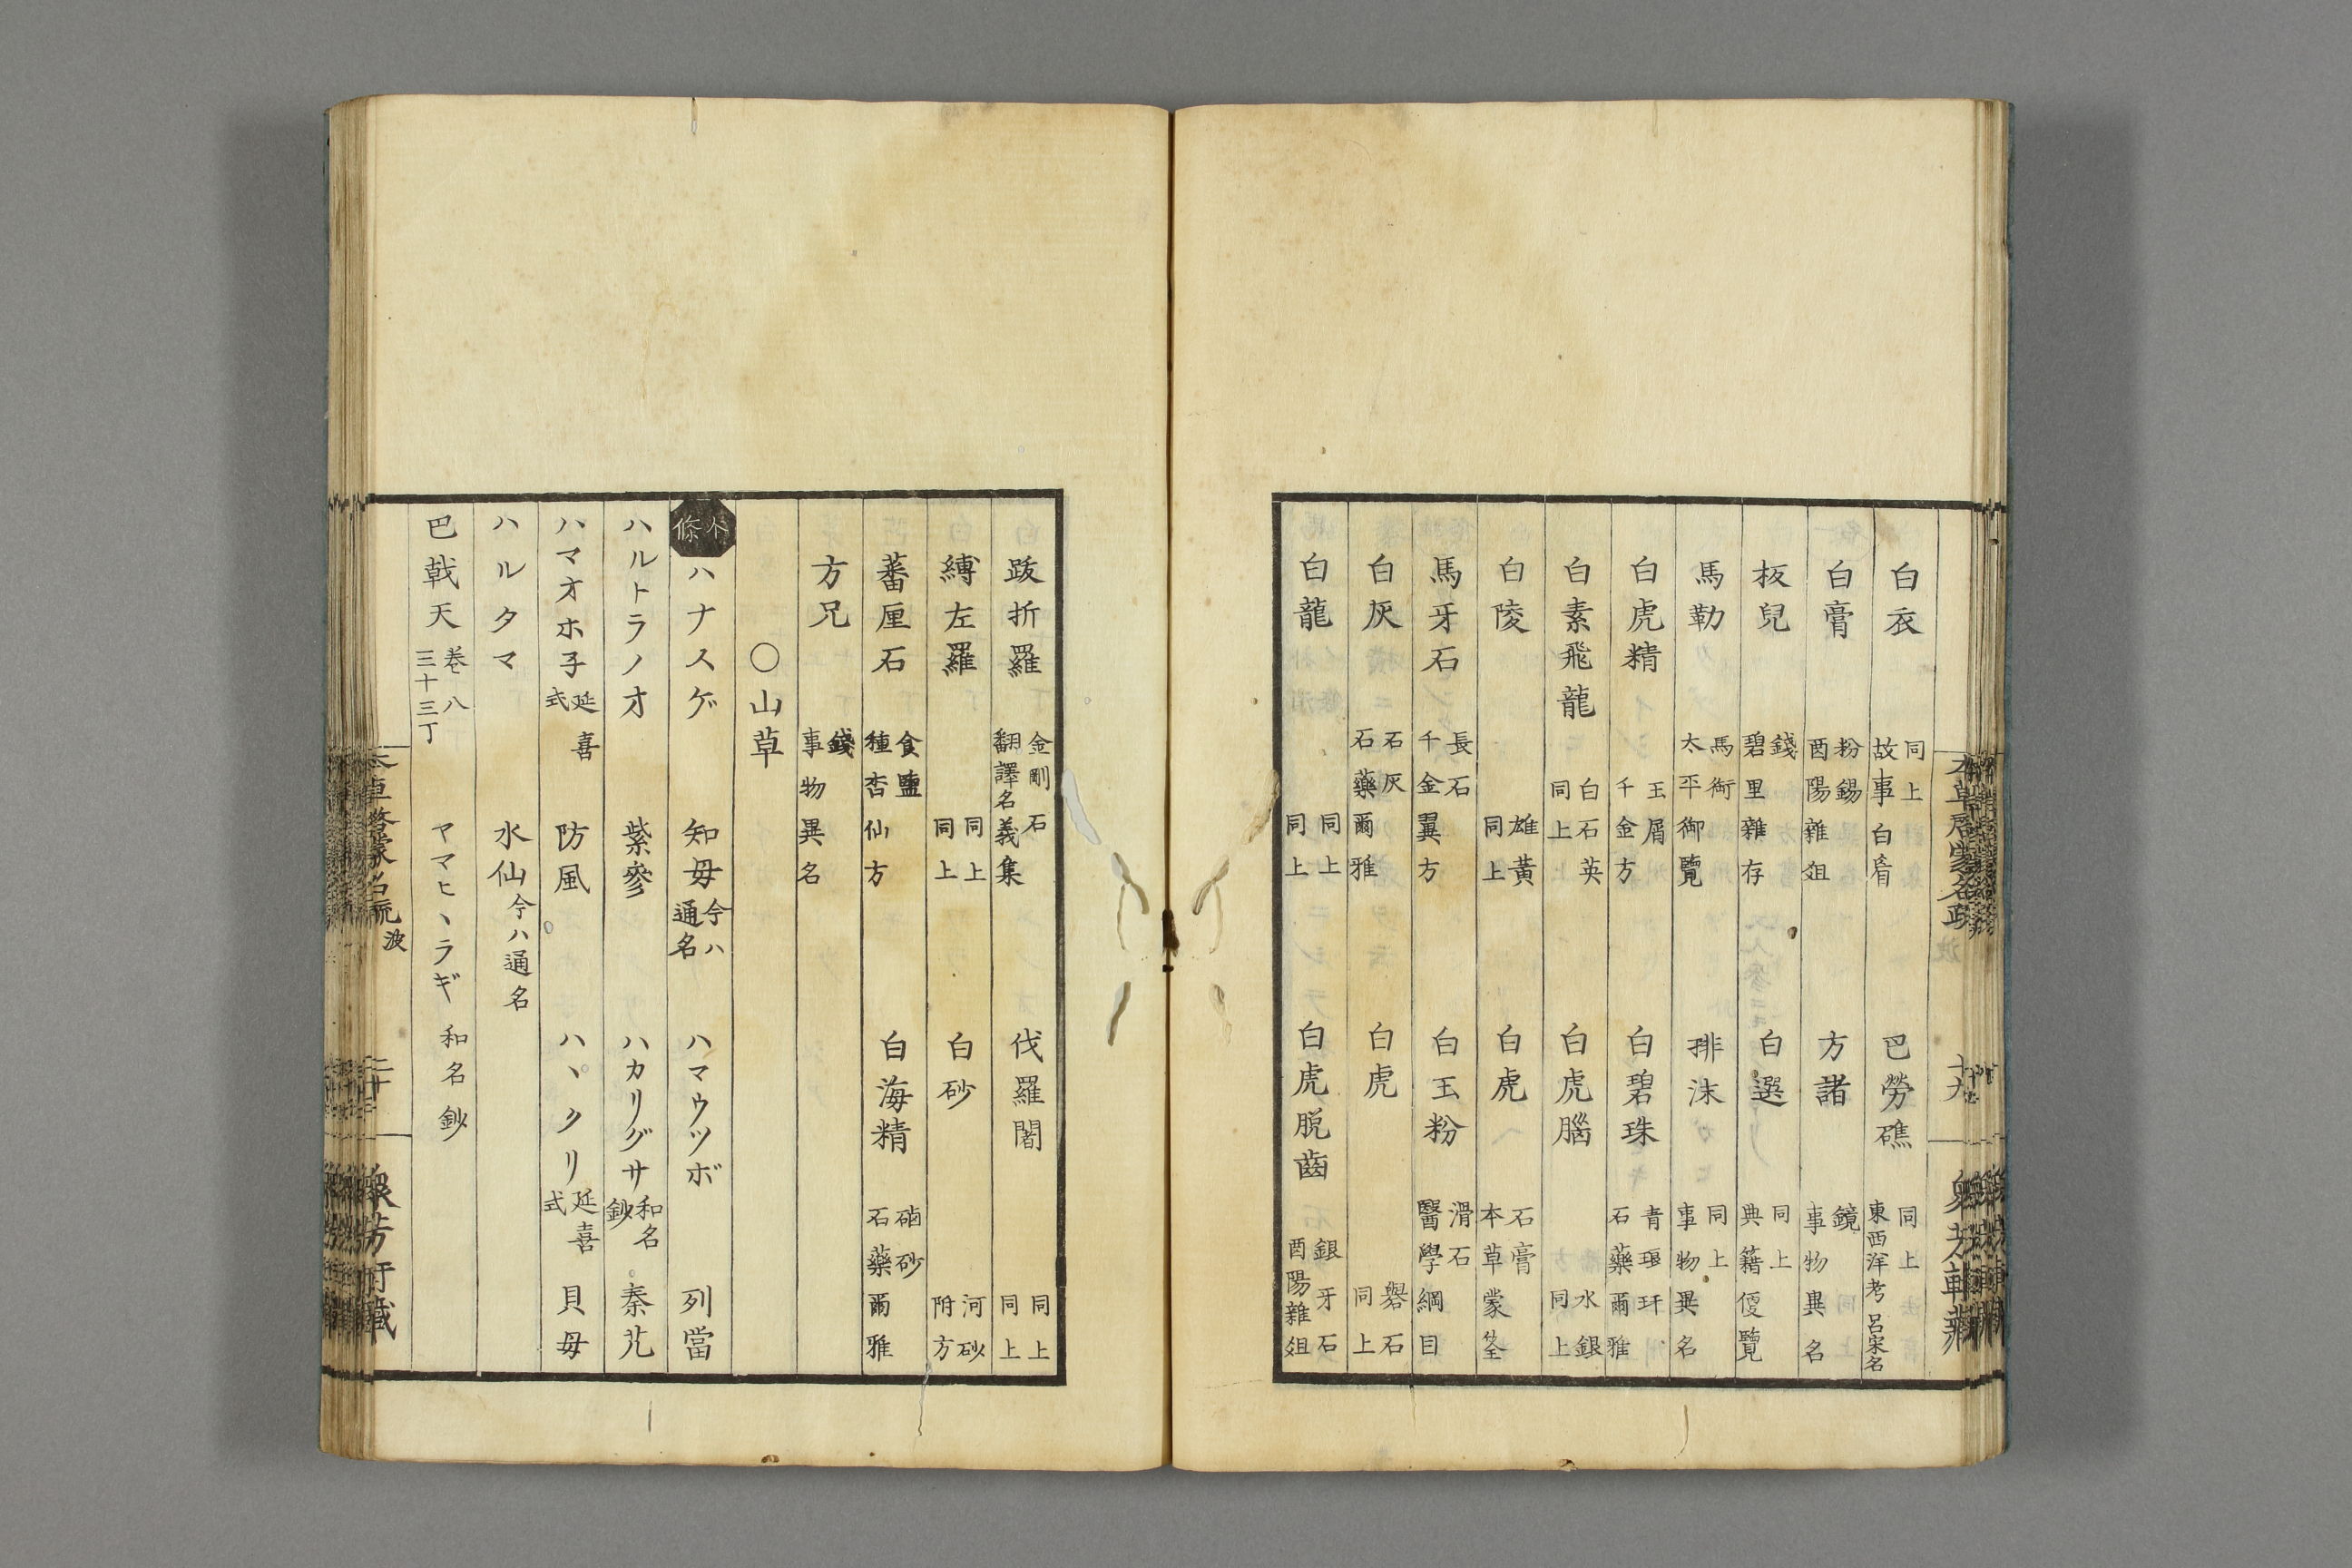 白衣 同上 故事白眉 巴勞礁 同上 東西洋考 呂宋名
白膏 粉錫 酉陽雜俎 方諸 鏡 事物異名
板兒 錢 碧里雜存 白選 同上 典籍便覽
馬勒 馬銜 太平御覽 排沫 同上 事物異名
白虎精 玉屑 千金方 白碧珠 青琅玕 石藥爾雅
白素飛龍 白石英 同上 白虎腦 水銀 同上
白陵 雄黃 同上 白虎 石膏 本草蒙筌
馬牙石 長石 千金翼方 白玉粉 滑石 醫學綱目
白灰 石灰 石藥爾雅 白虎 礜石 同上
白龍 同上 同上 白虎脱齒 銀牙石 酉陽雜俎
跋折羅 金剛石 翻譯名義集 伐羅闍 同上 同上
縛左羅 同上 同上 白砂 河砂 附方
蕃厘石 食鹽 種杏仙方 白海精 硇砂 石藥爾雅
方兄 錢 事物異名
〇山草
本條 ハナスゲ 知母 今ハ通名 ハマウツボ 列當
ハルトラノオ 紫參 ハカリグサ 和名鈔 秦艽
ハマオホ子 延喜式 防風 ハヽクリ 延喜式 貝母
ハルタマ 水仙 今ハ通名
巴戟天 卷八 三十三丁 ヤマヒヽラギ 和名鈔
本草啓蒙名疏 波 二十 衆芳軒藏